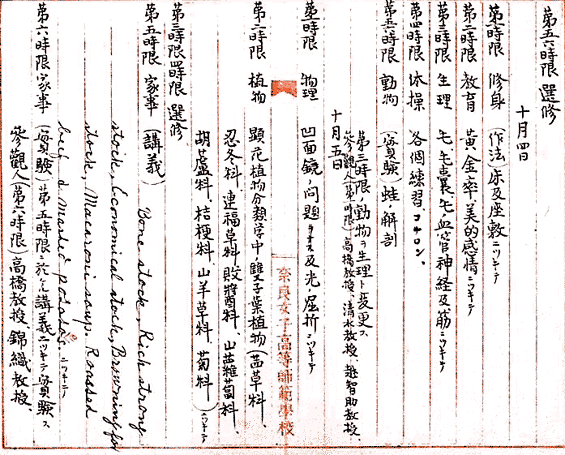 第五六時限 選修
十月四日
第一時限 修身 (作法)床及座敷ニツキテ
第二時限 教育 黄金率、美的感情ニツキテ
第三時限 生理 毛、毛嚢、毛ノ血管神経及筋ニツキテ
第四時限 体操 各個練習、コチロン、
第五時限 動物 (実験)蛙ノ解剖
十月五日
第三時限ノ動物ヲ生理ト変更ス
参観人(第四時限)高橋教授、清水教授、越智助教授、
第一時限 物理 凹面鏡ノ問題ヲナス及光ノ屈折ニツキテ
奈良女子高等師範學校
第二時限 植物 顕花植物分類学中、雙子葉植物(茜草科、
忍冬科、連福草科、敗醤科、山蘿蔔科、
胡蘆科、桔梗科、山羊草科、菊科)ニツキテ
第三時限四時限 選修
第五時限 家事 (講義) Bone stock, Rich strong
stock, Economical stock, Browning for
stock, Macaroni soup. Roasted
beef d. Mashed potatos ニツキテ
第六時限 家事 (実験)第五時限ニ於ケル講義ニツキテ実験ス
参観人(第六時限)高橋教授、錦織教授、